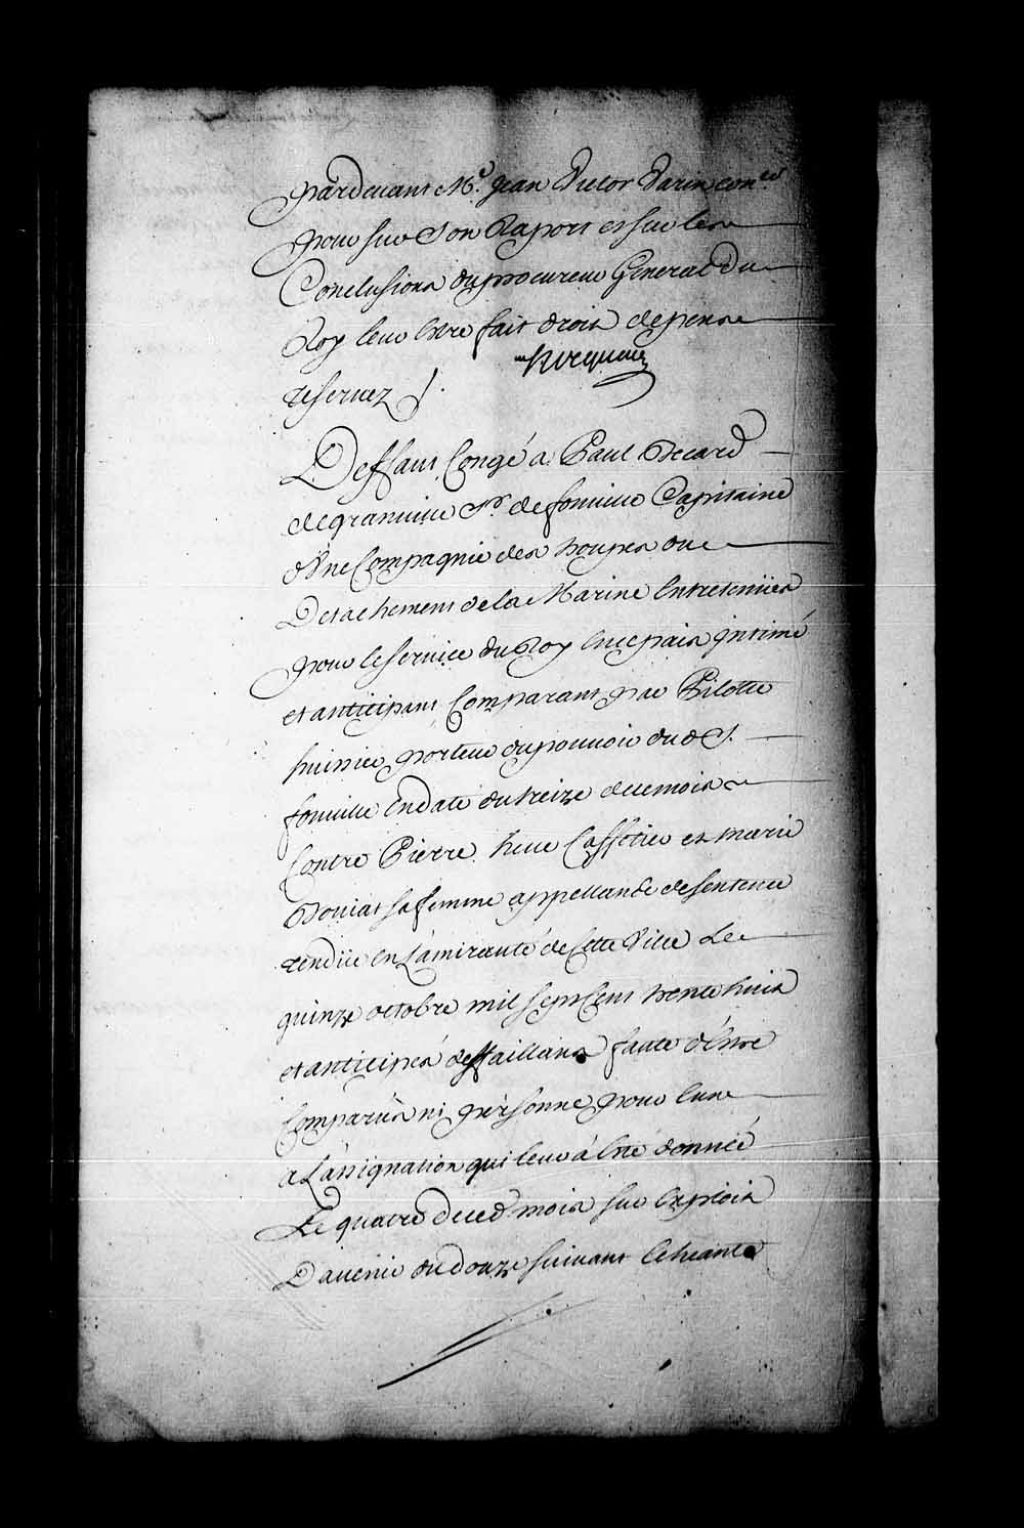 pardevant Me. Jean Victor Varin con.er
pour sur Son Raport et sur les
Conclusions du procureur General du
Roy leur Estre fait droit depens
reservez /.
hocquart
Deffaut Congé a Paul Becard
degranville Sr. de fonville Capitaine
d'Vne Compagnie des troupes du
Detachement de la Marine Entretenües
pour le service du Roy En ce païs intimé
et anticipant Comparant par Pilotte
huissier porteur du pouvoir dud. S.
fonville En date du treize de ce mois
Contre Pierre heve et marie
sa femme appellands de sentence
rendüe en L'amirauté de Cette Ville Le
quinze octobre mil sept Cent trente huit
et anticipés deffaillans faute d'Estre
Comparus ni personne pour Eux
a L'assignation qui leur à Eté donnée
Le quatre de ced. mois sur Exploit
D'avenir du douze suivant Echeante